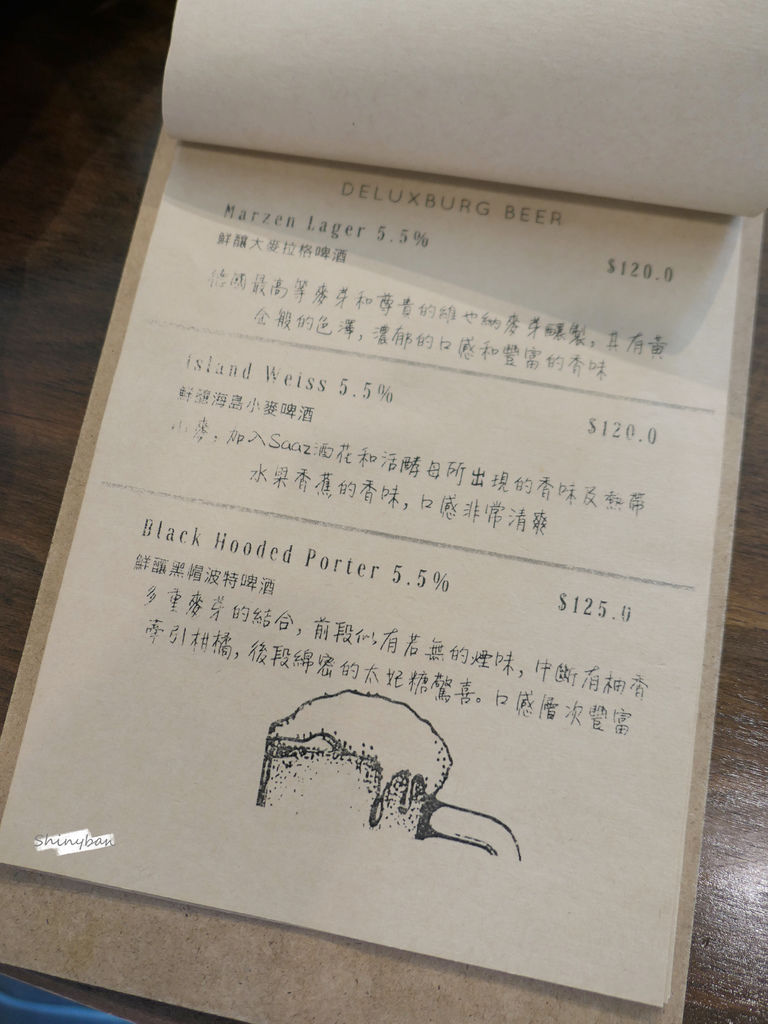 DELUXBURG BEER
Marzen Lager 5.5%
鮮釀大麥拉格啤酒
$120.0
德國最高等麥芽和尊貴的維也納麥芽釀製，具有黃
金般的色澤，濃郁的口感和豐富的香味
island Weiss 5.5%
鮮釀海島小麥啤酒
$120.0
小麥，加入Saaz酒花和活酵母所出現的香味及熱帶
水果香蕉的香味，口感非常清爽
Black Hooded Porter 5.5%
鮮釀黑帽波特啤酒
$125.0
多重麥芽的結合，前段似有若無的煙味，中斷有柚香
牽引柑橘，後段綿密的太妃糖驚喜。口感層次豐富
Shinyban